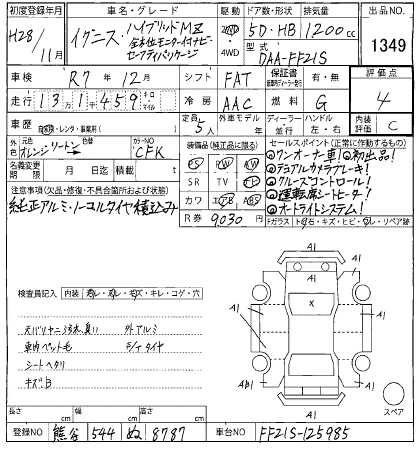 初度登録年月
H28/11月
車名・グレード
イグニス・ハイブリッドMZ
全方位モニター付ナビ
セーフティパッケージ
駆動 2WD 4WD
ドア数・形状 5D・HB
排気量 1200cc
型式 DAA-FF21S
出品NO.
1349
車検 R7年12月
シフト FAT
保証書 有・無
評価点
4
走行 131459 キロ マイル
冷房 AAC
燃料 G
内装評価 C
車歴 自家用・レンタ・事業用( )
定員 5人
外車モデル 年
ディーラー 並行
ハンドル 左・右
外色 元色 オレンジツートン 色替
カラーNO CFK
装備品(純正品に限る)
PS PW AW
SR TV
カワ エアB ABS
R券 9,030円
名義変更期限 月 日迄 積載 t
セールスポイント(正常に作動するもの)
◎ワンオーナー車!◎初出品!
◎デュアルカメラブレーキ!
◎クルーズコントロール!
◎運転席シートヒーター!
◎オートライトシステム!
注意事項(欠品・修復・不具合箇所および状態)
純正アルミ・ノーマルタイヤ積込み
Fガラス トビ石・キズ・ヒビ・ワレ・リペア跡
検査員記入
内装 ヨゴレ・スレ・キズ・キレ・コゲ・穴
天バリヤニ汚れ臭い 外アルミ
車内ペット毛 S/Wタイヤ
シートヘタリ
キズB
A1
A1
A1
X
A1
A1
AB1
A1
A1
スペア
長さ cm 幅 cm 高さ cm
登録NO 熊谷 544 ぬ 8787
車台NO FF21S-125985